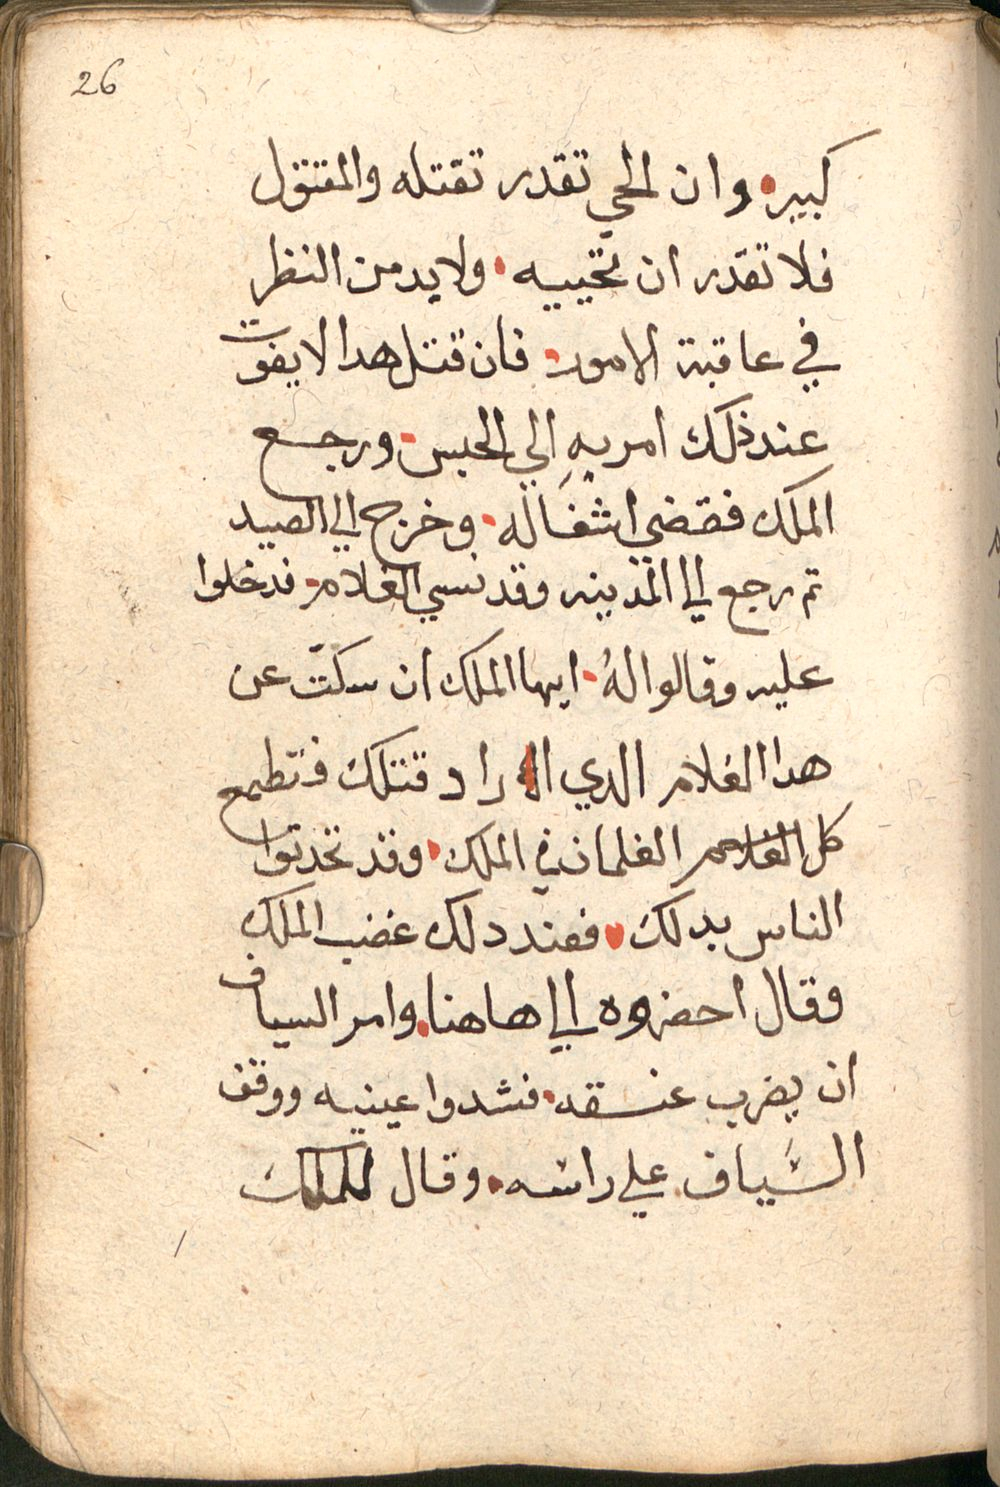 26
كبير. وان الحي تقدر تقتله والمقتول
فلا تقدر ان تحييه. ولا بد من النظر
في عاقبة الامور. فان قتل هدا لا يفوت
عند ذلك امر به الي الحبس. ورجع
الملك فقضي اشغاله. وخرج الي الصيد
تم رجع الي المدينه وقد نسي الغلام. فدخلوا
عليه وقالوا لهُ. ايها الملك ان سكتّ عن
هدا الغلام الدي اراد قتلك فتطمع
كل الغلمان في الملك. وقد تحدتوا
الناس بدلك. فعند دلك غضب الملك
وقال احضروه الي هاهنا. وامر السياف
ان يضرب عنقه. فشدوا عينيه ووقف
السياف علي راسه. وقال للملك